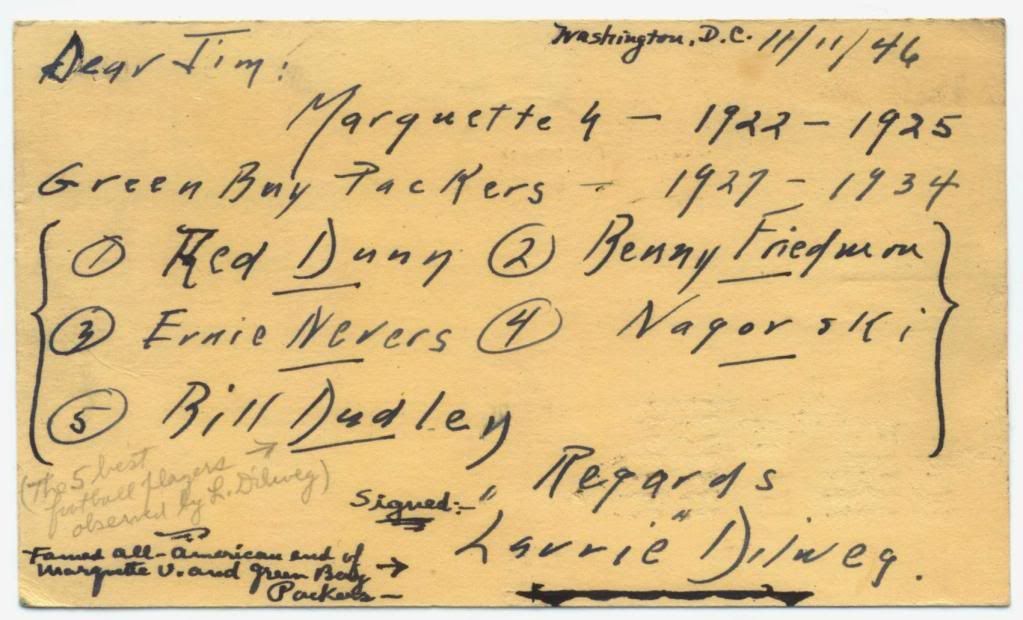 Washington, D.C. 11/11/46
Dear Jim:
Marquette U - 1922 - 1925
Green Bay Packers - 1927 - 1934
① Red Dunn ② Benny Friedman
③ Ernie Nevers ④ Nagorski
⑤ Bill Dudley
(The 5 best
football players →
observed by L. Dilweg)
Regards
Signed:- " Lavvie " Dilweg.
Famed all-American end of
Marquette U. and Green Bay →
Packers -